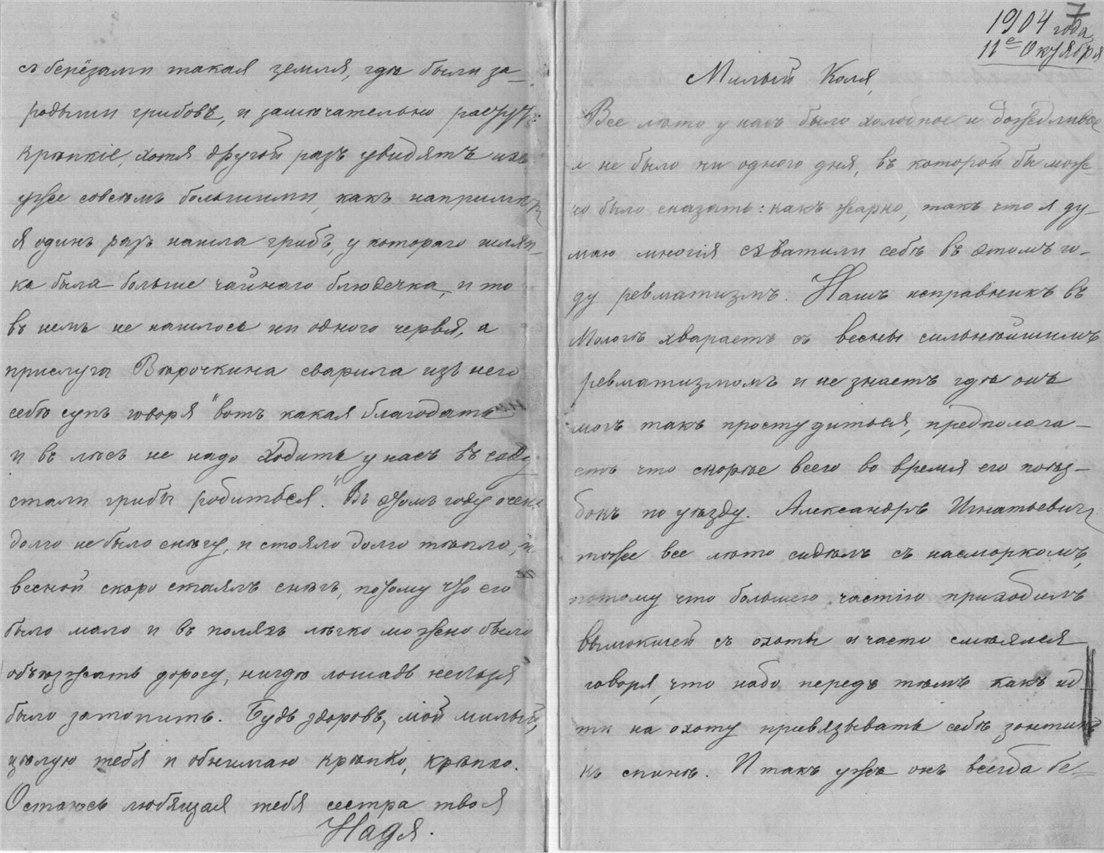 1904 7 года
11е Октября
Милый Коля,
Все лѣто у насъ было холодное и дождливое
и не было ни одного дня, въ которой бы мож-
но было сказать: какъ жарко, такъ что я ду-
маю многія схватили себѣ въ этомъ го-
ду ревматизмъ. Нашъ исправникъ въ
Мологѣ хвараетъ съ весны сильнѣйшимъ
ревматизмомъ и не знаетъ гдѣ онъ
могъ такъ простудиться, предпологa-
етъ что скорѣе всего во время его поѣз-
докъ по уѣзду. Александръ Игнатьевичъ
тоже все лѣто сидѣлъ съ насморкомъ,
потому что большею частію приходилъ
вымокшей съ охоты и часто смѣялся
говоря, что надо передъ тѣмъ какъ ид-
ти на охоту привязывать себѣ зонтикъ
къ спинѣ. И такъ ужъ онъ всегда бе-
съ берёзами такая земля, гдѣ были за-
родыши грибовъ, и замѣчательно растутъ
крѣпкіе, хотя другой разъ увидятъ ихъ
уже совсѣмъ большими, какъ напримѣръ
я одинъ разъ нашла грибъ, у котораго шляп-
ка была больше чайнаго блюдечка, и то
въ немъ не нашлось ни одного червя, а
прислуга Вѣрочкина сварила изъ него
себѣ супъ говоря "вотъ какая благодать
и въ лѣсъ не надо ходить у насъ въ саду
стали грибы родиться." Въ этомъ году очень
долго не было снѣгу, и стояло долго тепло, и
весной скоро стаялъ снѣгъ, потому что его
было мало и въ поляхъ лѣгко можно было
объѣзжать дорогу, нигдѣ лошадь нельзя
было затопить. Будь здоровъ, мой милый,
цѣлую тебя и обнимаю крѣпко, крѣпко.
Остаюсь любящая тебя сестра твоя
Надя.